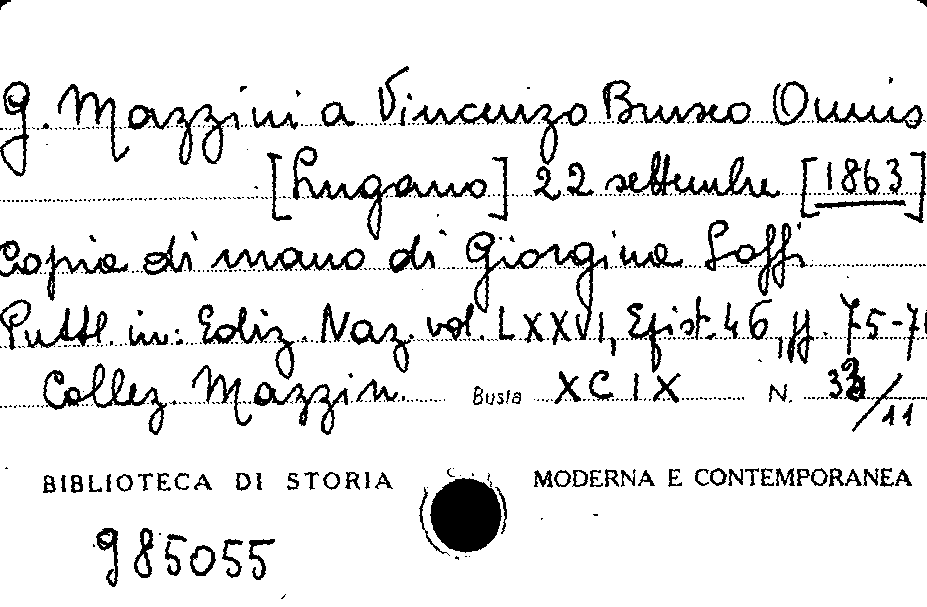 G. Mazzini a Vincenzo Brusco Onnis
[Lugano] 22 settembre [1863]
Copia di mano di Giorgina Saffi
Pubbl. in: Ediz. Naz. vol. LXXVI, Epist. 46, pp. 75-
Collez. Mazzin. Busta XCIX N. /11
BIBLIOTECA DI STORIA MODERNA E CONTEMPORANEA
985055